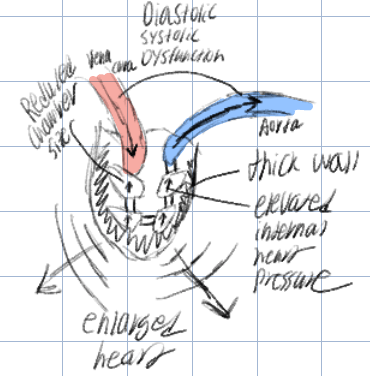 Diastolic
systolic
Dysfunction
vena
cava
Reduced
chamber
size
Aorta
thick wall
elevated
internal
heart
pressure
enlarged
heart